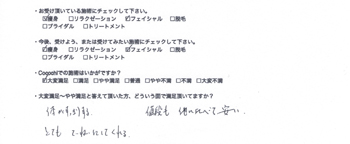 ・お受け頂いている施術にチェックして下さい。
☑痩身 □リラクゼーション ☑フェイシャル □脱毛
□ブライダル □トリートメント
・今後、受けよう、または受けてみたい施術にチェックして下さい。
□痩身 □リラクゼーション ☑フェイシャル □脱毛
□ブライダル □トリートメント
・Cogoshiでの施術はいかがですか？
☑大変満足 □満足 □やや満足 □普通 □やや不満 □不満 □大変不満
・大変満足～やや満足と答えて頂いた方、どういう面で満足頂いてますか？
体がすっきりする 値段も 他に比べて安い
とても ていねいにしてくれる